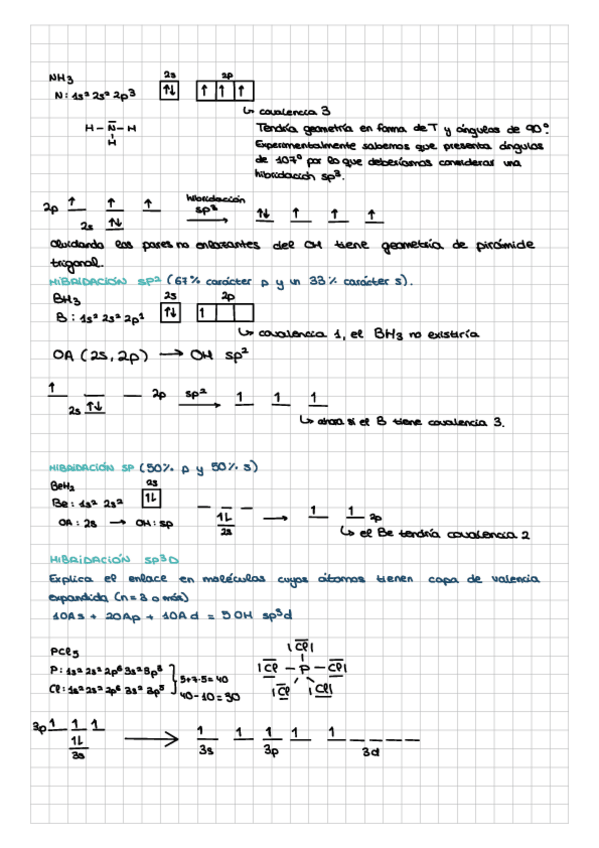 NH3 2s 2p
N: 1s² 2s² 2p³ ↑↓ ↑ ↑ ↑
↳ covalencia 3
H – N – H
H
Tendría geometría en forma de T y ángulos de 90º.
Experimentalmente sabemos que presenta ángulos
de 107º por lo que deberíamos considerar una
hibridación sp³.
2p ↑ ↑ ↑ hibridación sp³ → ↑↓ ↑ ↑ ↑
2s ↑↓
Olvidando los pares no enlazantes del OH tiene geometría de pirámide
trigonal.
HIBRIDACIÓN SP² (67% carácter p y un 33% carácter s).
BH3 2s 2p
B: 1s² 2s² 2p¹ ↑↓ 1
↳ covalencia 1, el BH3 no existiría
OA (2s, 2p) → OH sp²
↑ 2p sp² → 1 1 1
2s ↑↓
↳ ahora sí el B tiene covalencia 3.
HIBRIDACIÓN SP (50% p y 50% s)
BeH2 2s
Be: 1s² 2s² 1⇂
OA: 2s → OH: sp 1⇂ → 1 1 2p
2s
↳ el Be tendría covalencia 2
HIBRIDACIÓN SP³D
Explica el enlace en moléculas cuyos átomos tienen capa de valencia
expandida (n=3 o más)
1OAs + 2OAp + 1OAd = 5OH sp³d
PCl5
P: 1s² 2s² 2p⁶ 3s² 3p³
Cl: 1s² 2s² 2p⁶ 3s² 3p⁵
5+7·5=40
40-10=30
Cl
Cl – P – Cl
Cl Cl
3p 1 1 1 → 1 1 1 1 1
1⇂
3s 3s 3p 3d